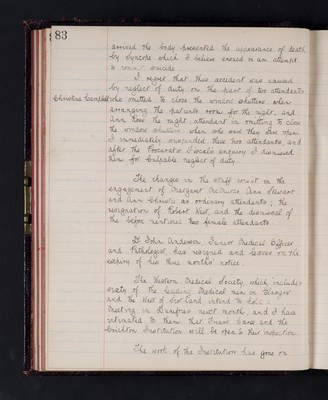 83
arrived the body presented the appearance of death
by Syncope which I believe ensued in an attempt
to commit suicide
I regret that this accident was caused
by neglect of duty on the part of two attendants
Christina Campbell who omitted to close the window shutters when
arranging the patients room for the night, and
Ann Ross the night attendant in omitting to close
the window shutters when she saw they were open
I immediately suspended these two attendants, and
after the Procurator Fiscal's enquiry I dismissed
them for culpable neglect of duty.
The changes in the staff consist in the
engagement of Margaret Ann Stewart
and Ann Christie as ordinary attendants; the
resignation of Robert West, and the dismissal of
the before mentioned two female attendants.
Dr John Anderson, Junior Medical Officer
and Pathologist, has resigned and leaves on the
expiry of his three months notice.
The Western Medical Society, which includes
many of the leading Medical men in Glasgow
and the West of Scotland, intend to hold a
Meeting in Dumfries next month, and I have
intimated to them that and the
Crichton Institution will be open to their inspection
The work of the Institution has gone on